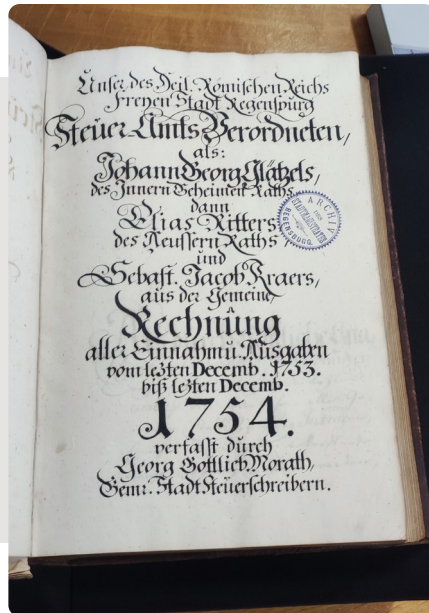 Unser des Heil. Römischen Reichs
Freyen Stadt Regenspurg
Steüer Amts Verordneten,
als:
Johann Georg Gläzels,
des Innern Geheimen Raths
dann
Elias Ritters
des Aeussern Raths
und
Sebast. Jacob Kraers,
aus der Gemeine
Rechnüng
aller Einnahm u. Ausgaben
vom lezten Decemb. 1753.
biß lezten Decemb.
1754.
verfasst durch
Georg Gottlieb Morath,
Gemr. Stadt Steüerschreibern.
ARCHIV
REGENSBURG